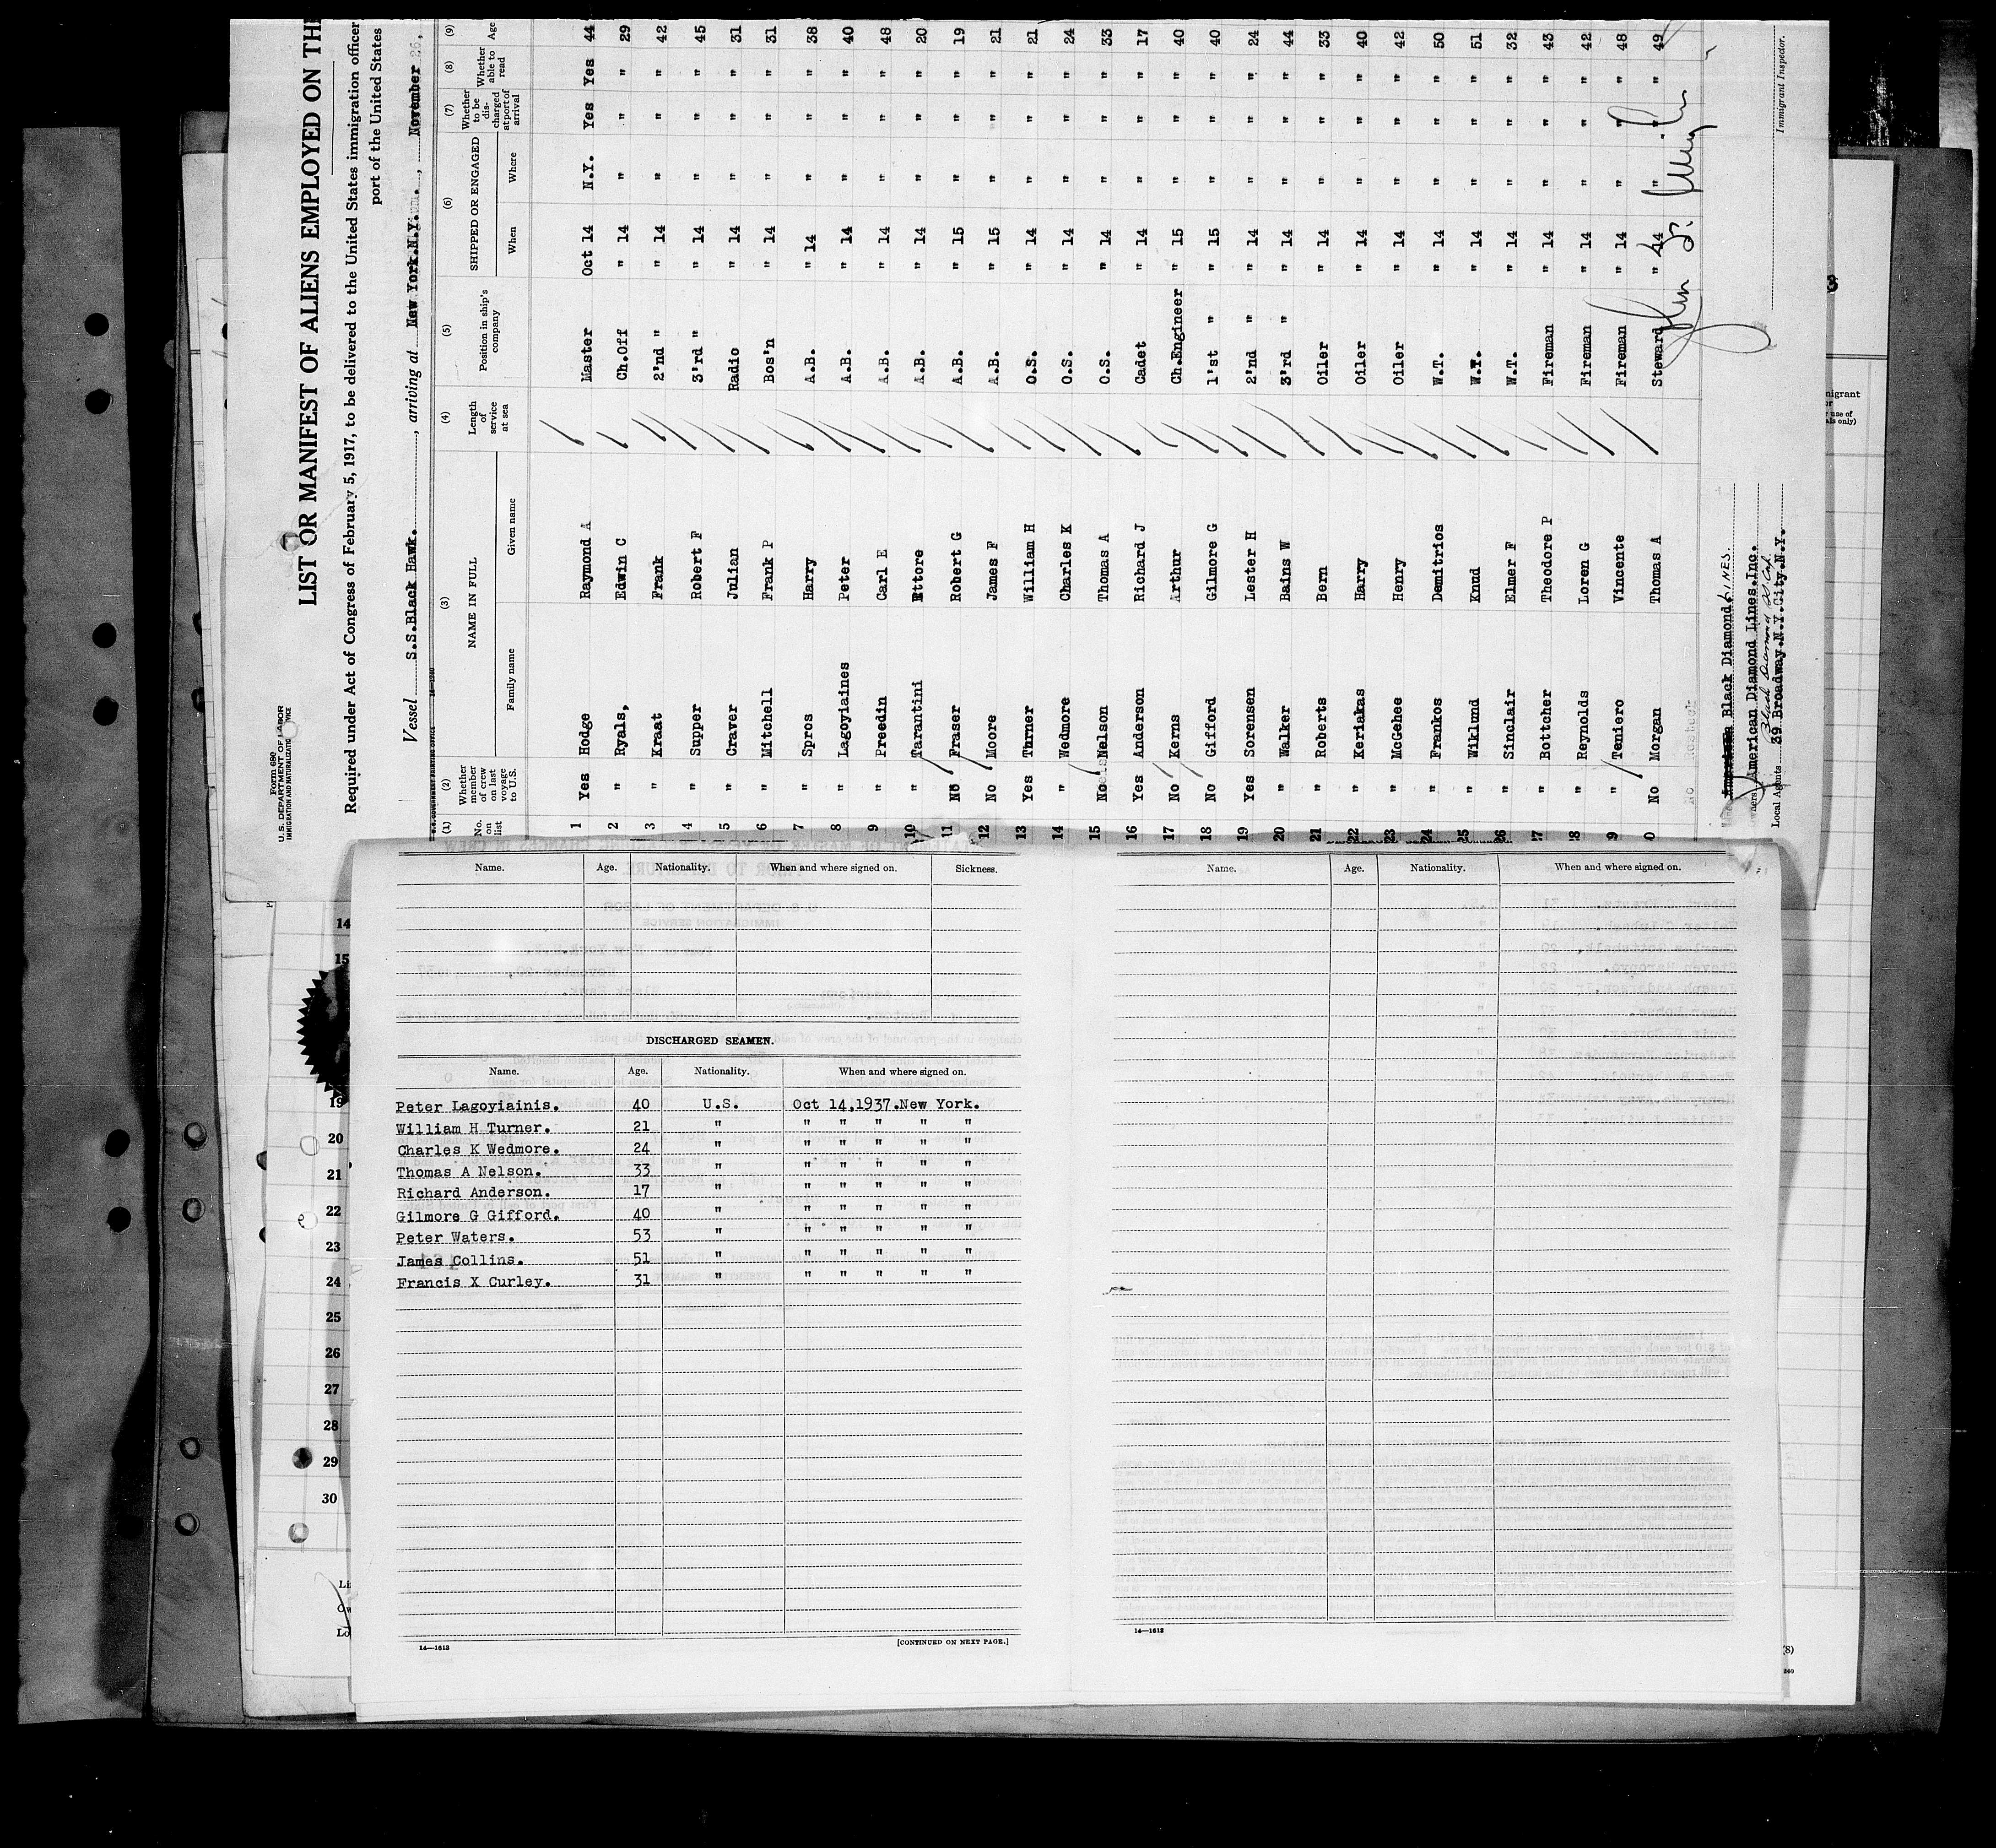 Form 680
U. S. DEPARTMENT OF LABOR
IMMIGRATION AND NATURALIZATION SERVICE
LIST OR MANIFEST OF ALIENS EMPLOYED ON TH
Required under Act of Congress of February 5, 1917, to be delivered to the United States immigration officer
port of the United States
Vessel S.S.Black Hawk. , arriving at New York.N.Y. , November 26,
(1) (2) (3) (4) (5) (6) (7) (8) (9)
No. on list Whether member of crew on last voyage to U.S. NAME IN FULL Family name Given name Length of service at sea Position in ship's company SHIPPED OR ENGAGED When Where Whether to be discharged at port of arrival Whether able to read Age
1 Yes Hodge Raymond A Master Oct 14 N.Y. Yes Yes 44
2 " Ryals, Edwin C Ch.Off " 14 " " " 29
3 " Kraat Frank 2'nd " " 14 " " " 42
4 " Supper Robert F 3'rd " " 14 " " " 45
5 " Craver Julian Radio " 14 " " " 31
6 " Mitchell Frank P Bos'n " 14 " " " 31
7 " Spros Harry A.B. " 14 " " " 38
8 " Lagoyiaines Peter A.B. " 14 " " " 40
9 " Preedin Carl E A.B. " 14 " " " 48
10 " Tarantini Ettore A.B. " 14 " " " 20
11 No Fraser Robert G A.B. " 15 " " " 19
12 No Moore James F A.B. " 15 " " " 21
13 Yes Turner William H O.S. " 14 " " " 21
14 " Wedmore Charles K O.S. " 14 " " " 24
15 No Nelson Thomas A O.S. " 14 " " " 33
16 Yes Anderson Richard J Cadet " 14 " " " 17
17 No Kerns Arthur Ch.Engineer " 15 " " " 40
18 No Gifford Gilmore G 1'st " " 15 " " " 40
19 Yes Sorensen Lester H 2'nd " " 14 " " " 24
20 " Walker Bains W 3'rd " " 14 " " " 44
21 " Roberts Bern Oiler " 14 " " " 33
22 " Keriakas Harry Oiler " 14 " " " 40
23 " McGehee Henry Oiler " 14 " " " 42
24 " Frankos Demitrios W.T. " 14 " " " 50
25 " Wiklund Knud W.T. " 14 " " " 51
26 " Sinclair Elmer F W.T. " 14 " " " 32
27 " Bottcher Theodore P Fireman " 14 " " " 43
28 " Reynolds Loren G Fireman " 14 " " " 42
9 " Teniero Vincente Fireman " 14 " " " 48
0 No Morgan Thomas A Steward " 14 " " " 49
Black Diamond LINES.
American Diamond Lines.Inc.
Local Agents 39 Broadway.N.Y.City.N.Y.
Immigrant Inspector.
14
15
19
20
21
22
23
24
25
26
27
28
29
30
Name. Age. Nationality. When and where signed on. Sickness.
DISCHARGED SEAMEN.
Name. Age. Nationality. When and where signed on.
Peter Lagoyiainis. 40 U.S. Oct 14,1937.New York.
William H Turner. 21 " " " " " "
Charles K Wedmore. 24 " " " " " "
Thomas A Nelson. 33 " " " " " "
Richard Anderson. 17 " " " " " "
Gilmore G Gifford. 40 " " " " " "
Peter Waters. 53 " " " " " "
James Collins. 51 " " " " " "
Francis X Curley. 31 " " " " " "
14—1613 [CONTINUED ON NEXT PAGE.]
Name. Age. Nationality. When and where signed on.
14—1613